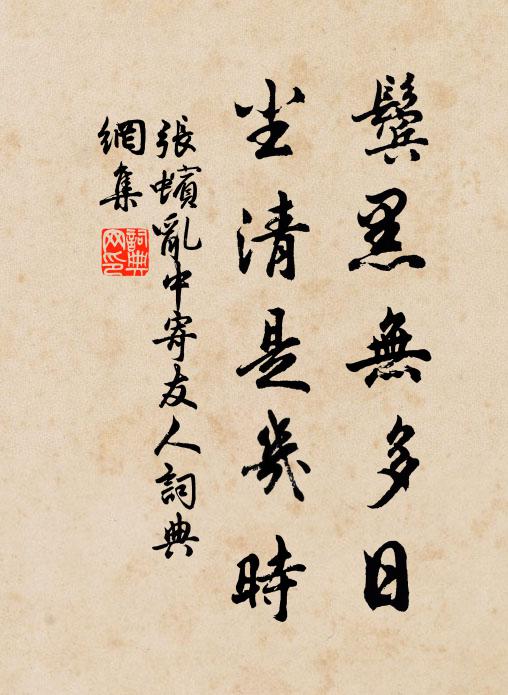 鬓黑無多日
尘清是幾時
張蠙亂中寄友人詞典
網集
詞典
网印